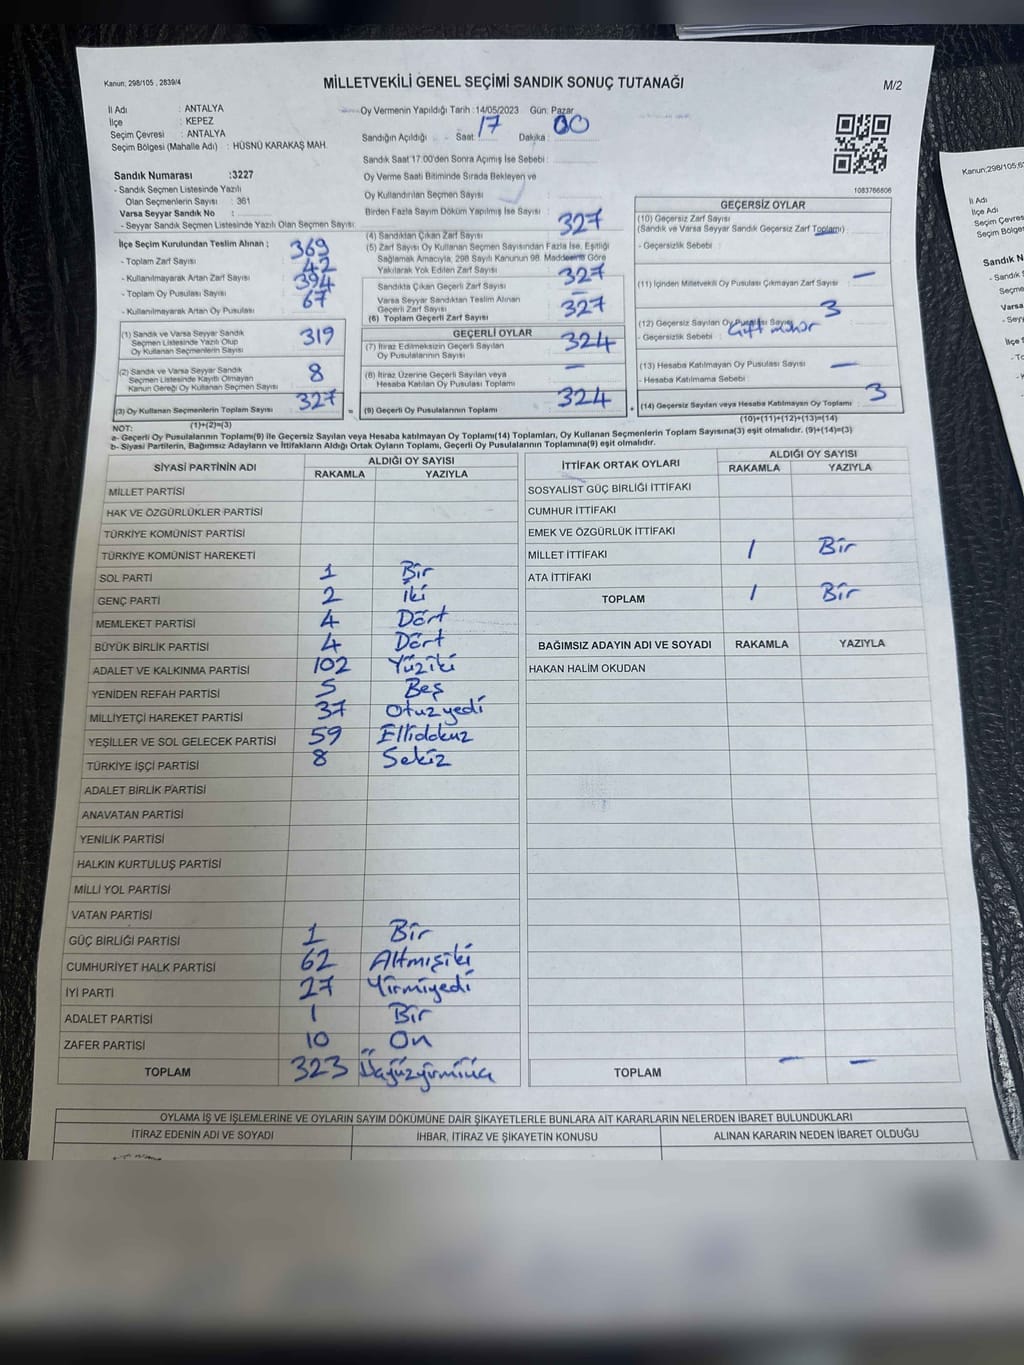 Kanun; 298/105 , 2839/4
MİLLETVEKİLİ GENEL SEÇİMİ SANDIK SONUÇ TUTANAĞI
M/2
İl Adı : ANTALYA
İlçe : KEPEZ
Seçim Çevresi : ANTALYA
Seçim Bölgesi (Mahalle Adı) : HÜSNÜ KARAKAŞ MAH.
Oy Vermenin Yapıldığı Tarih :14/05/2023 Gün: Pazar
Sandığın Açıldığı Saat: 17 Dakika: 00
Sandık Saat 17.00'den Sonra Açımış İse Sebebi :
Oy Verme Saati Bitiminde Sırada Bekleyen ve
Oy Kullandırılan Seçmen Sayısı
Birden Fazla Sayım Döküm Yapılmış İse Sayısı :
1083766806
Sandık Numarası :3227
- Sandık Seçmen Listesinde Yazılı
Olan Seçmenlerin Sayısı : 361
Varsa Seyyar Sandık No :
- Seyyar Sandık Seçmen Listesinde Yazılı Olan Seçmen Sayısı:
İlçe Seçim Kurulundan Teslim Alınan ;
- Toplam Zarf Sayısı : 369
- Kullanılmayarak Artan Zarf Sayısı : 42
- Toplam Oy Pusulası Sayısı : 394
- Kullanılmayarak Artan Oy Pusulası : 67
(1) Sandık ve Varsa Seyyar Sandık
Seçmen Listesinde Yazılı Olup
Oy Kullanan Seçmenlerin Sayısı 319
(2) Sandık ve Varsa Seyyar Sandık
Seçmen Listesinde Kayıtlı Olmayan
Kanun Gereği Oy Kullanan Seçmen Sayısı 8
(3) Oy Kullanan Seçmenlerin Toplam Sayısı 327
(1)+(2)=(3)
(4) Sandıktan Çıkan Zarf Sayısı 327
(5) Zarf Sayısı Oy Kullanan Seçmen Sayısından Fazla İse, Eşitliği
Sağlamak Amacıyla, 298 Sayılı Kanunun 98. Maddesine Göre
Yakılarak Yok Edilen Zarf Sayısı
Sandıkta Çıkan Geçerli Zarf Sayısı 327
Varsa Seyyar Sandıktan Teslim Alınan
Geçerli Zarf Sayısı –
(6) Toplam Geçerli Zarf Sayısı 327
GEÇERLİ OYLAR
(7) İtiraz Edilmeksizin Geçerli Sayılan
Oy Pusulalarının Sayısı 324
(8) İtiraz Üzerine Geçerli Sayılan veya
Hesaba Katılan Oy Pusulası Toplamı –
= (9) Geçerli Oy Pusulalarının Toplamı 324
GEÇERSİZ OYLAR
(10) Geçersiz Zarf Sayısı
(Sandık ve Varsa Seyyar Sandık Geçersiz Zarf Toplamı)
- Geçersizlik Sebebi :
(11) İçinden Milletvekili Oy Pusulası Çıkmayan Zarf Sayısı –
(12) Geçersiz Sayılan Oy Pusulası Sayısı 3
- Geçersizlik Sebebi : Çift mühür
(13) Hesaba Katılmayan Oy Pusulası Sayısı –
- Hesaba Katılmama Sebebi
+ (14) Geçersiz Sayılan veya Hesaba Katılmayan Oy Toplamı 3
(10)+(11)+(12)+(13)=(14)
NOT:
a- Geçerli Oy Pusulalarının Toplamı(9) İle Geçersiz Sayılan veya Hesaba katılmayan Oy Toplamı(14) Toplamları, Oy Kullanan Seçmenlerin Toplam Sayısına(3) eşit olmalıdır. (9)+(14)=(3)
b- Siyasi Partilerin, Bağımsız Adayların ve İttifakların Aldığı Ortak Oyların Toplamı, Geçerli Oy Pusulalarının Toplamına(9) eşit olmalıdır.
SİYASİ PARTİNİN ADI
ALDIĞI OY SAYISI
RAKAMLA YAZIYLA
MİLLET PARTİSİ
HAK VE ÖZGÜRLÜKLER PARTİSİ
TÜRKİYE KOMÜNİST PARTİSİ
TÜRKİYE KOMÜNİST HAREKETİ
SOL PARTİ 1 Bir
GENÇ PARTİ 2 iki
MEMLEKET PARTİSİ 4 Dört
BÜYÜK BİRLİK PARTİSİ 4 Dört
ADALET VE KALKINMA PARTİSİ 102 Yüziki
YENİDEN REFAH PARTİSİ 5 Beş
MİLLİYETÇİ HAREKET PARTİSİ 37 Otuzyedi
YEŞİLLER VE SOL GELECEK PARTİSİ 59 Ellidokuz
TÜRKİYE İŞÇİ PARTİSİ 8 Sekiz
ADALET BİRLİK PARTİSİ
ANAVATAN PARTİSİ
YENİLİK PARTİSİ
HALKIN KURTULUŞ PARTİSİ
MİLLİ YOL PARTİSİ
VATAN PARTİSİ
GÜÇ BİRLİĞİ PARTİSİ 1 Bir
CUMHURİYET HALK PARTİSİ 62 Altmışiki
İYİ PARTİ 27 Yirmiyedi
ADALET PARTİSİ 1 Bir
ZAFER PARTİSİ 10 On
TOPLAM 323 Üçyüzyirmiüç
İTTİFAK ORTAK OYLARI
ALDIĞI OY SAYISI
RAKAMLA YAZIYLA
SOSYALİST GÜÇ BİRLİĞİ İTTİFAKI
CUMHUR İTTİFAKI
EMEK VE ÖZGÜRLÜK İTTİFAKI
MİLLET İTTİFAKI 1 Bir
ATA İTTİFAKI
TOPLAM 1 Bir
BAĞIMSIZ ADAYIN ADI VE SOYADI RAKAMLA YAZIYLA
HAKAN HALİM OKUDAN
TOPLAM – –
OYLAMA İŞ VE İŞLEMLERİNE VE OYLARIN SAYIM DÖKÜMÜNE DAİR ŞİKAYETLERLE BUNLARA AİT KARARLARIN NELERDEN İBARET BULUNDUKLARI
İTİRAZ EDENİN ADI VE SOYADI İHBAR, İTİRAZ VE ŞİKAYETİN KONUSU ALINAN KARARIN NEDEN İBARET OLDUĞU
Kanun;298/105,
İl Adı
İlçe Adı
Seçim Böl
Sandık N
- Sandık
Seçme
Varsa
- Sey
İlçe